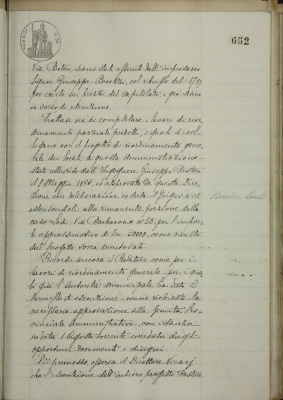 652
Via Botero, siano stati assunti dall'impresario
signor Giuseppe
per cento sui prezzi del capitolato e già siano
in corso di esecuzione.
Trattasi ora di completare i lavori di rior-
dinamento parziale predetti, i quali si colle-
gano con il progetto di riordinamento gene-
rale dei locali di questa Amministrazione
stato allestito dall'Ingegnere Giuseppe
il Maggio 1896, ed approvato da questa Dire-
zione con deliberazione in data Giugno
estendendoli alla rimanente porzione della
casa Via Barbaroux N° 20, per l'impor-
to approssimativo di Lire 50000, come risulta
dal progetto sovra menzionato.
Ricorda ancora il Relatore come per i
lavori di riordinamento generale, per i qua-
li già l'Autorità municipale ha dato il
permesso di esecuzione, venne richiesta la
necessaria approvazione alla Giunta Pro-
vinciale Amministrativa, con istanza
in data Agosto corrente corredata degli
opportuni documenti e disegni.
Ciò premesso, osserva il Direttore
che l'esecuzione dell'intiero progetto